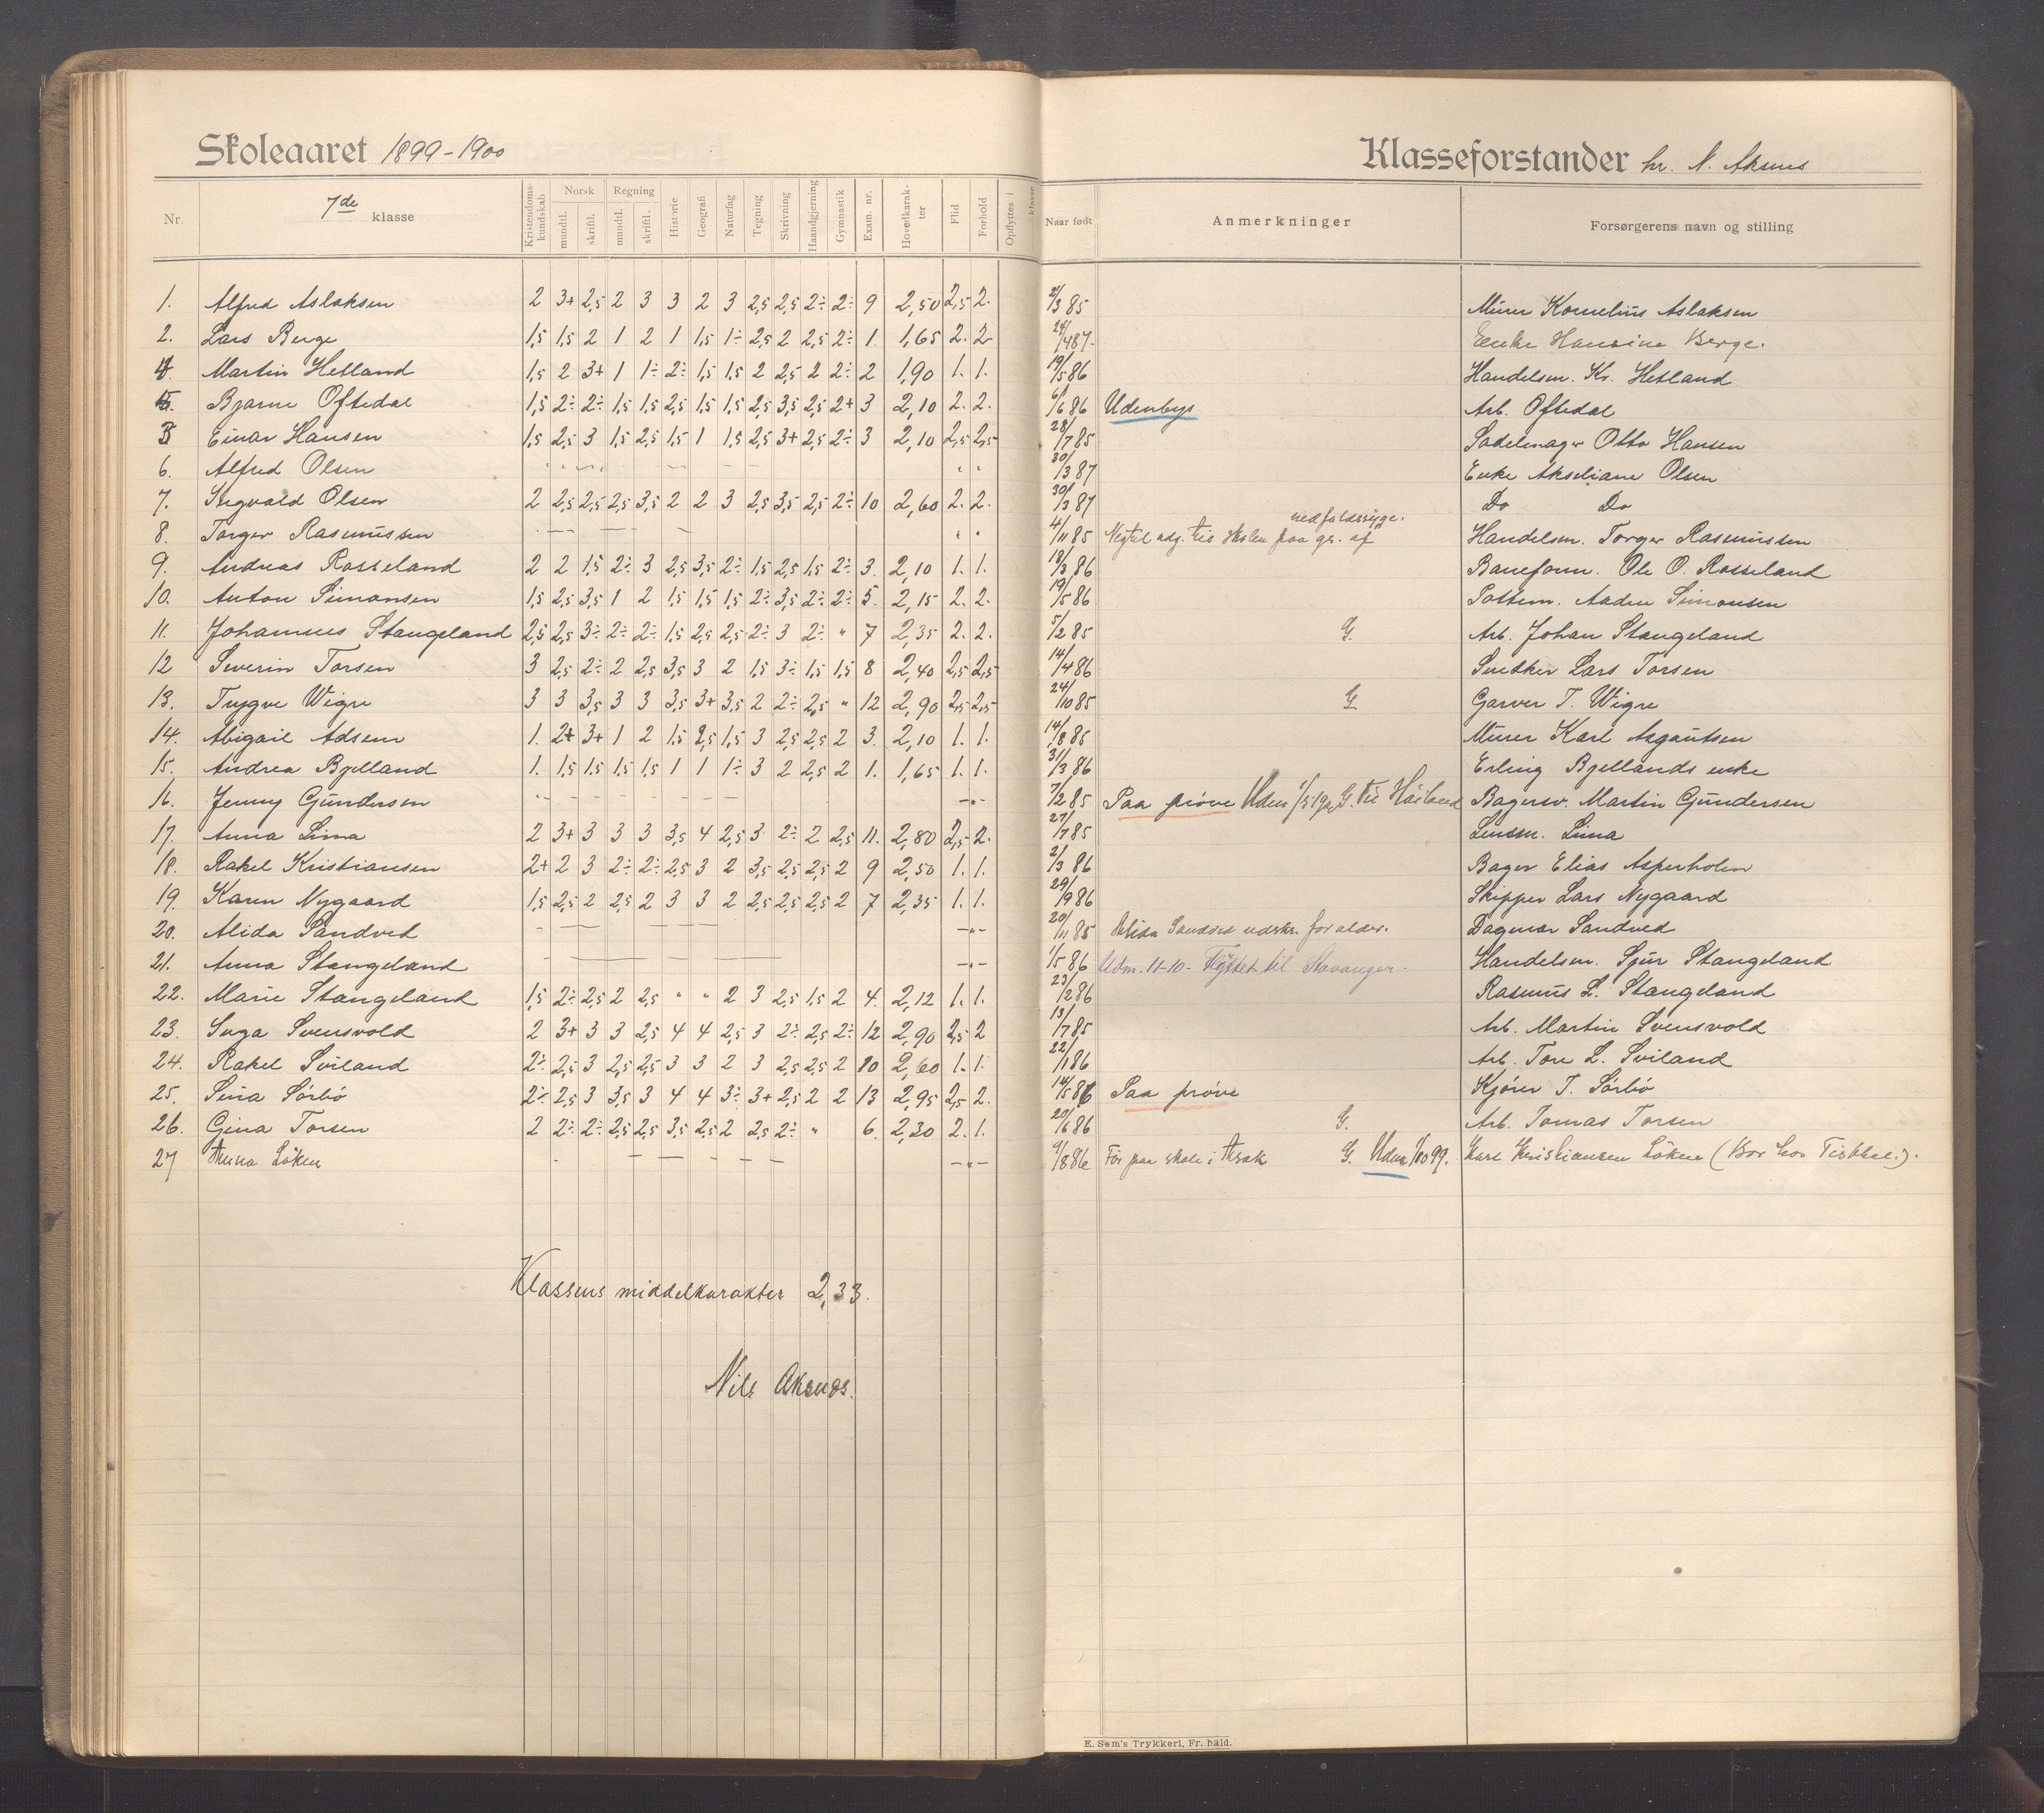 Skoleaaret 1899-1900
Klasseforstander hr. N. Aksnes
Nr.
7de klasse
Kristendomskundskab
Norsk mundtl. skriftl.
Regning mundtl. skriftl.
Historie
Geografi
Naturfag
Tegning
Skrivning
Haandgjerning
Gymnastik
Exam. nr.
Hovedkarakter
Flid
Forhold
Opflyttes i klasse
Naar født
Anmerkninger
Forsørgerens navn og stilling
1. Alfred Aslaksen 2 3+ 2,5 2 3 3 2 3 2,5 2,5 2÷ 2÷ 9 2,50 2,5 2. 2/3 85 Murer Kornelius Aslaksen
2. Lars Berge 1,5 1,5 2 1 2 1 1,5 1÷ 2,5 2 2,5 2÷ 1. 1,65 2. 2 24/4 87 Enke Hansine Berge.
4. Martin Hetland 1,5 2 3+ 1 1÷ 2÷ 1,5 1,5 2 2,5 2 2÷ 2 1,90 1. 1. 19/5 86 Handelsm. Kr. Hetland
5. Bjarne Oftedal 1,5 2÷ 2÷ 1,5 1,5 2,5 1,5 1,5 2,5 3,5 2,5 2+ 3 2,10 2. 2. 6/6 86 Udenbys Arb. Oftedal
3 Einar Hansen 1,5 2,5 3 1,5 2,5 1,5 1 1,5 2,5 3+ 2,5 2÷ 3 2,10 2,5 2,5 28/7 85 Sadelmager Otto Hansen
6. Alfred Olsen 30/3 87 Enke Akseliane Olsen
7. Sigvald Olsen 2 2,5 2,5 2,5 3,5 2 2 3 2,5 3,5 2,5 2÷ 10 2,60 2. 2. 30/3 87 Do Do
8. Torger Rasmussen 4/11 85 Negtet adg. til skolen paa gr. af nedfaldssyge. Handelsm. Torger Rasmussen
9. Andreas Rosseland 2 2 1,5 2÷ 3 2,5 3,5 2÷ 1,5 2,5 1,5 2÷ 3. 2,10 1. 1. 18/3 86 Baneform. Ole O. Rosseland
10. Anton Simonsen 1,5 2,5 3,5 1 2 1,5 1,5 1,5 2÷ 3,5 2÷ 2÷ 5. 2,15 2. 2. 19/5 86 Pottem. Aaden Simonsen
11. Johannes Stangeland 2,5 2,5 3÷ 2÷ 2÷ 1,5 2,5 2,5 2÷ 3 2÷ " 7 2,35 2. 2. 5/2 85 G. Arb. Johan Stangeland
12 Severin Torsen 3 2,5 2÷ 2 2,5 3,5 3 2 1,5 3÷ 1,5 1,5 8 2,40 2,5 2,5 14/4 86 Snedker Lars Torsen
13. Trygve Wigre 3 3 3,5 3 3 3,5 3+ 3,5 2 2÷ 2,5 " 12 2,90 2,5 2,5 24/10 85 G Garver T. Wigre
14. Abigail Adsem 1. 2+ 3+ 1 2 1,5 2,5 1,5 3 2,5 2,5 2 3. 2,10 1. 1. 14/8 85 Murer Karl Asgautsen
15. Andrea Bjelland 1. 1,5 1,5 1,5 1,5 1 1 1÷ 3 2 2,5 2 1. 1,65 1. 1. 31/3 86 Erling Bjellands enke
16. Jenny Gundersen 7/2 85 Paa prøve G. Til Bagersv. Martin Gundersen
17. Anna Lima 2 3+ 3 3 3 3,5 4 2,5 3 2÷ 2 2,5 11. 2,80 2,5 2. 27/7 85 Lensm. Lima
18. Rakel Kristiansen 2+ 2 3 2÷ 2÷ 2,5 3 2 3,5 2,5 2,5 2 9 2,50 1. 1. 2/3 86 Bager Elias Asperholm
19. Karen Nygaard 1,5 2,5 2 2,5 2 3 3 2 2,5 2,5 2,5 2 7 2,35 1. 1. 29/9 86 Skipper Lars Nygaard
20. Alida Sandved 20/11 85 Alida Sandved udskr. for alder. Dagmar Sandved
21. Anna Stangeland 1/5 86 Udm. 11-10- Flyttet til Stavanger. Handelsm. Sjur Stangeland
22. Marie Stangeland 1,5 2÷ 2,5 2 2,5 " " 2 3 2,5 1,5 2 4. 2,12 1. 1. 23/12 86 Rasmus L. Stangeland
23. Inga Svensvold 2 3+ 3 3 2,5 4 4 2,5 3 2÷ 2,5 2÷ 12 2,90 2,5 2 13/7 85 Arb. Martin Svensvold
24. Rakel Sviland 2÷ 2,5 3 2,5 2,5 3 3 2 3 2,5 2,5 2 10 2,60 1. 1. 22/1 86 Arb. Tore L. Sviland
25. Sina Sørbø 2÷ 2,5 3 3,5 3 4 4 3÷ 3+ 2,5 2 2 13 2,95 2,5 2. 14/5 86 Paa prøve Kjører T. Sørbø
26. Gina Torsen 2 2÷ 2÷ 2,5 2,5 3,5 2,5 2 2,5 2÷ " 6. 2,30 2. 1. 20/6 86 G. Arb. Tomas Torsen
27 Anna Löken 9/8 86 Før paa skole i Arsak G. Udm 1/10 99. Karl Kristiansen Löken
Klassens middelkarakter 2,33.
Nils Aksnes.
E. Søm's Trykkeri, Fr. hald.